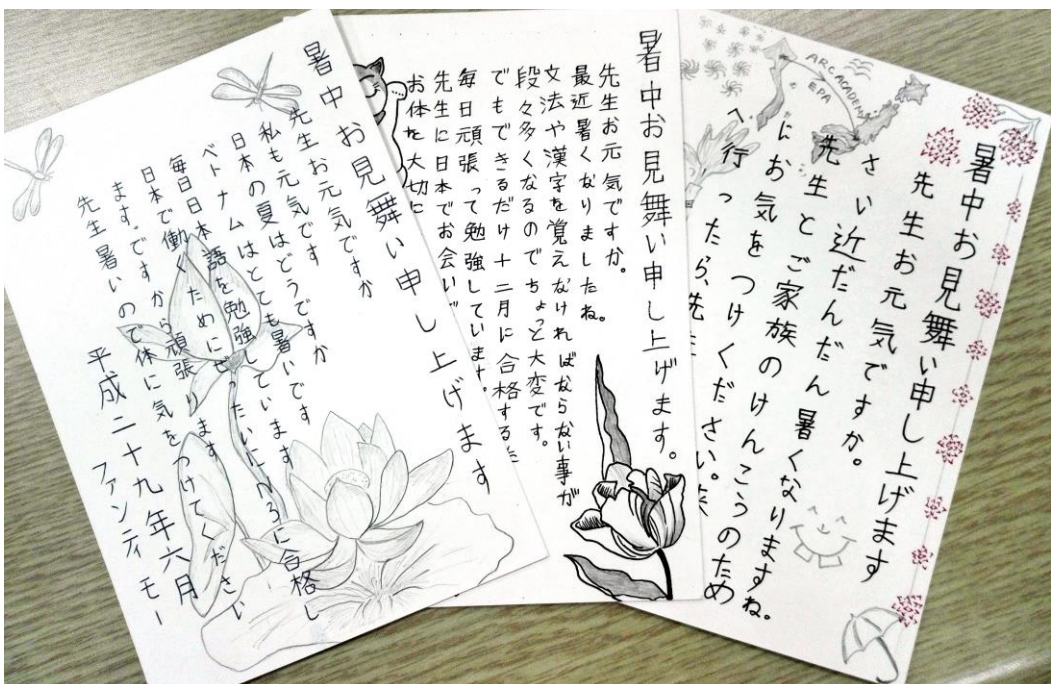 暑中お見舞い申し上げます
先生お元気ですか
私も元気です
日本の夏はどうですか
ベトナムはとても暑いです
毎日日本語を勉強しています
日本で働くためにぜったいにN3に合格し
ます。ですから頑張ります
先生暑いので体に気をつけてください
平成二十九年六月
ファンティモー
暑中お見舞い申し上げます。
先生お元気ですか。
最近暑くなりましたね。
文法や漢字を覚えなければならない事が
段々多くなるのでちょっと大変です。
でもできるだけ十二月に合格するた
毎日頑張って勉強しています。
先生に日本でお会いで
お体を大切に
ARCACADEMY
EPA
暑中お見舞い申し上げます
先生お元気ですか。
さい近だんだん暑くなりますね。
先生とご家族のけんこうのため
にお気をつけください。来
へ行ったら、先